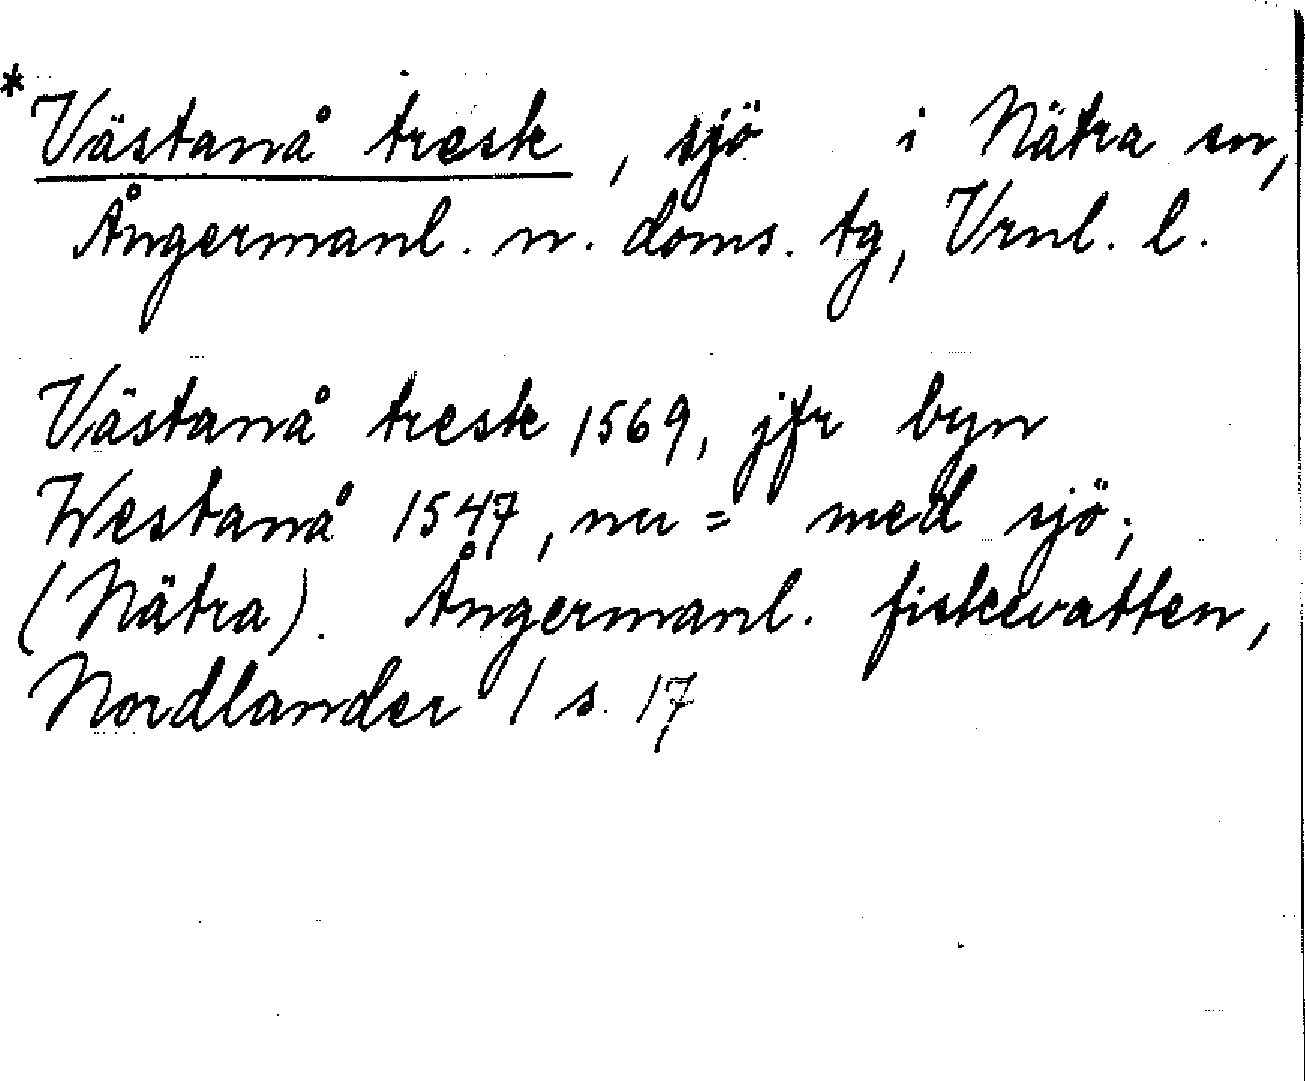 *Västanå tresk, sjö i Nätra sn,
Ångermanl. n. doms. tg, Vrnl. l.
Västanå tresk 1569, jfr byn
Westanå 1547, nu = med sjö;
(Nätra). Ångermanl. fiskevatten,
Nordlander 1 s. 17